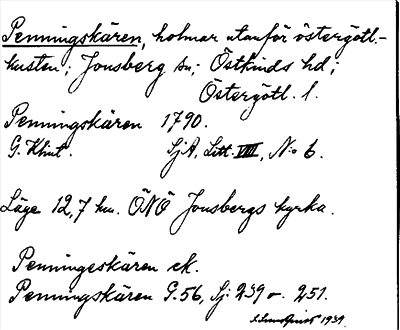 Penningskären, holmar utanför östergötl.-
kusten; Jonsberg sn; Östkinds hd;
Östergötl. l.
Penningskären 1790.
G. Klint. SjA. Litt. VIII, No 6.
Läge 12,7 km. ÖNÖ Jonsbergs kyrka.
Penningeskären ek.
Penningskären G. 56, Sj. 239 o. 251.
1939.